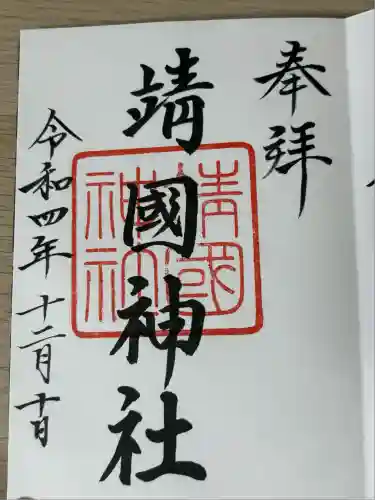 奉拜
靖國神社
靖國
神社
令和四年十二月十日